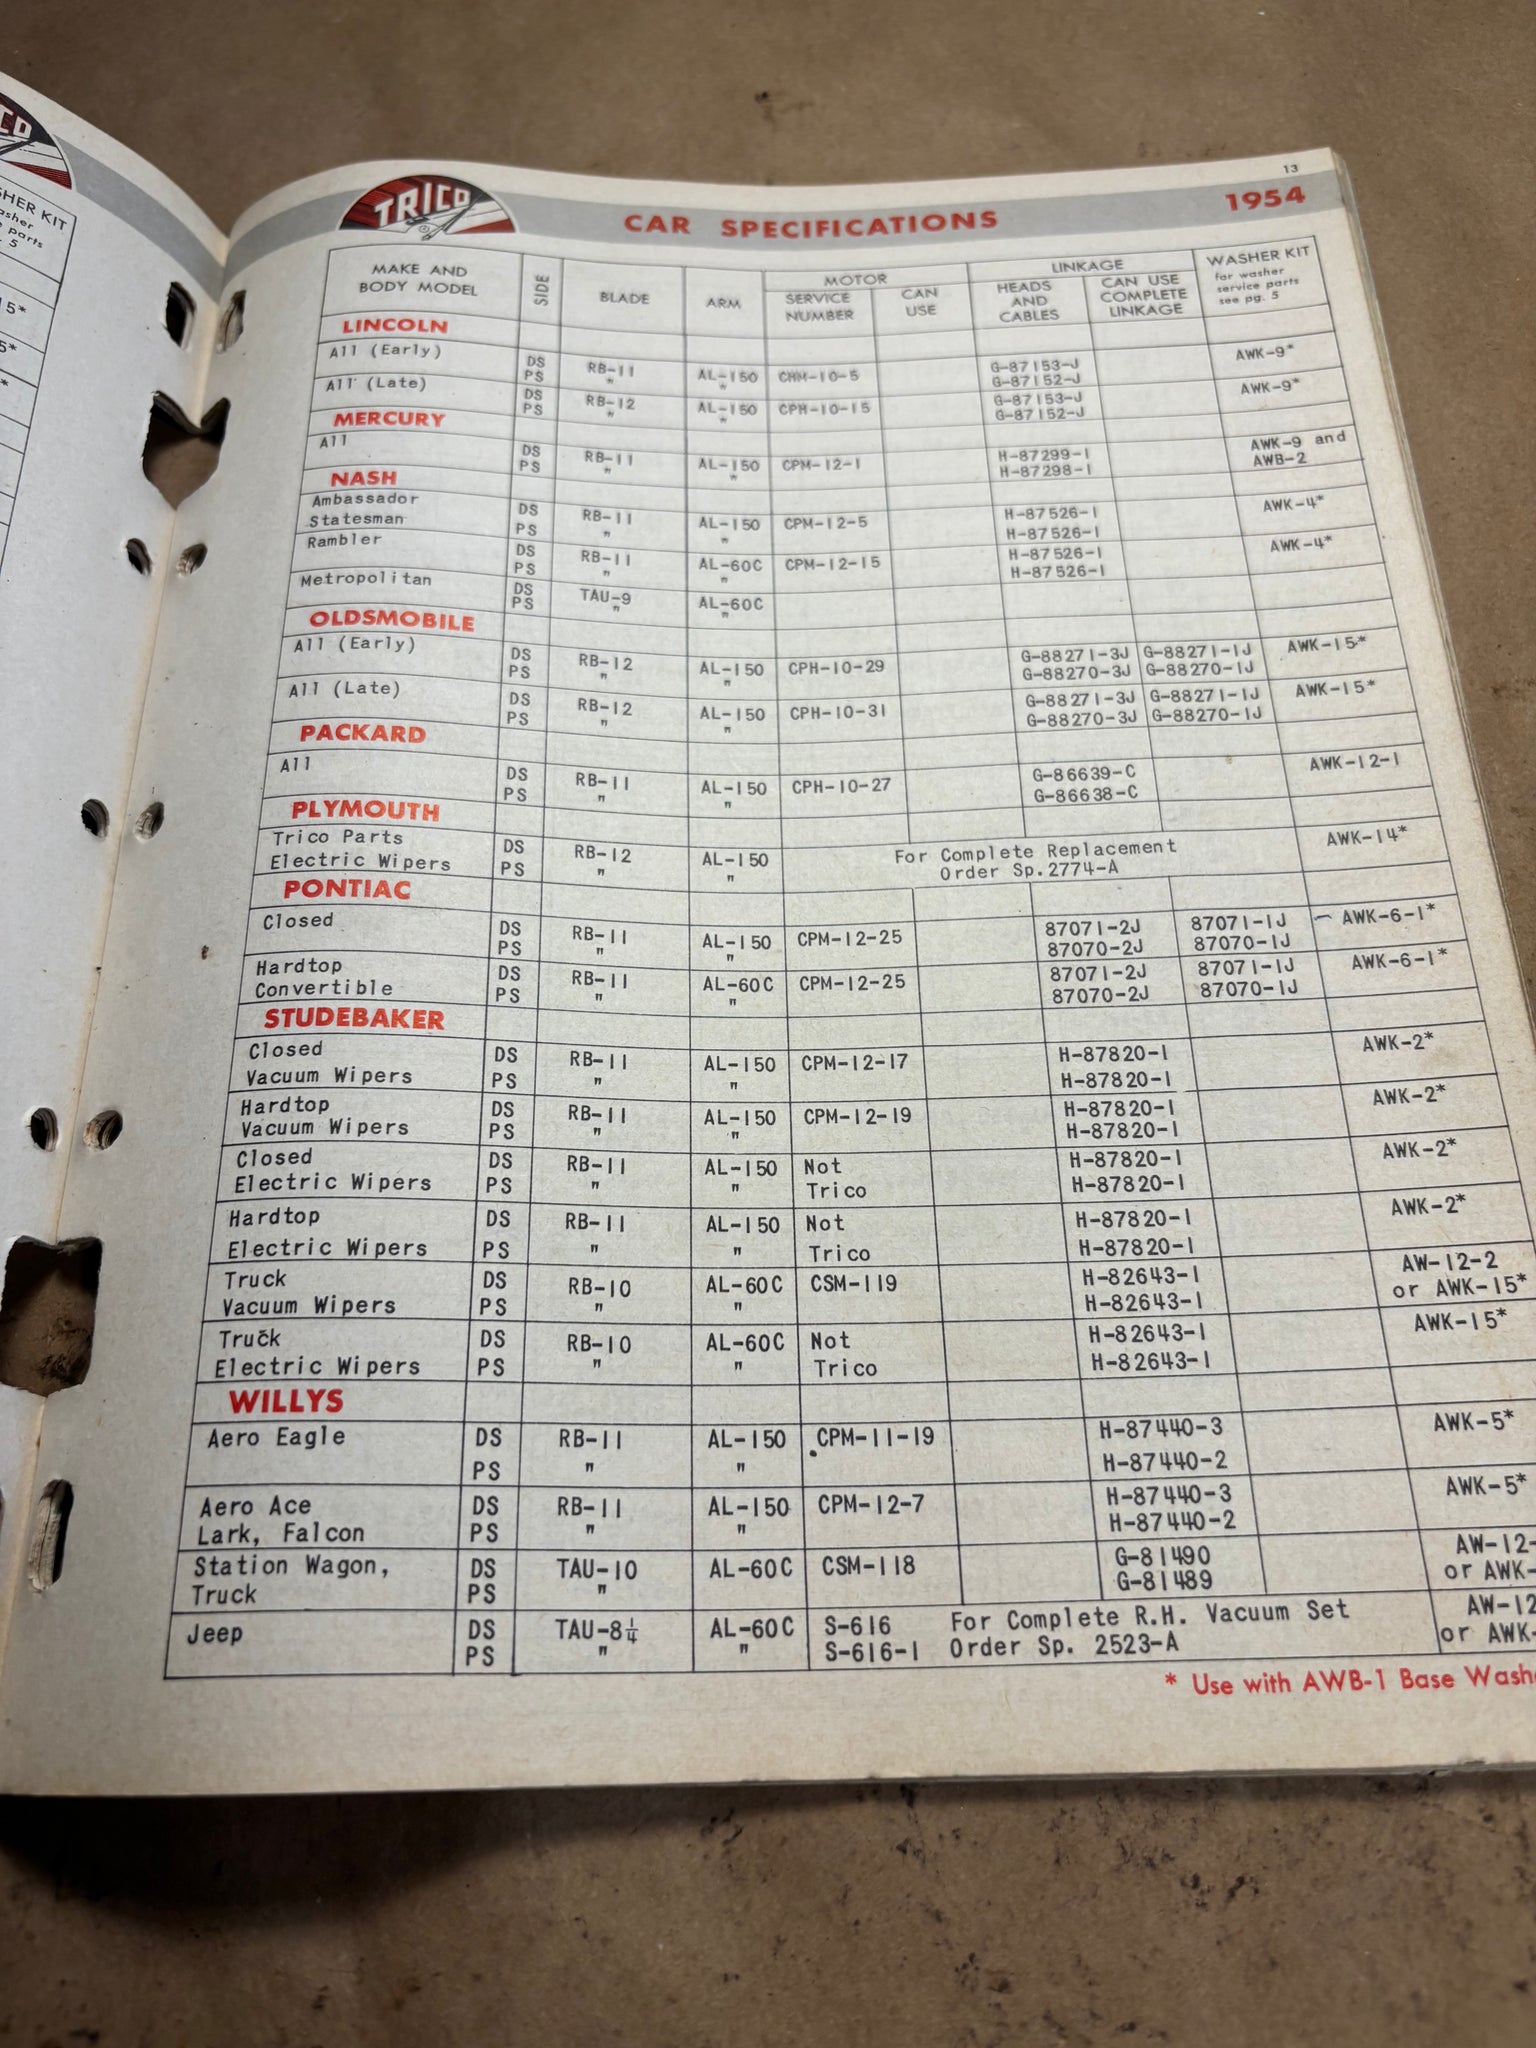 CO
SHER KIT
asher
e parts
5
15*
5*
*
13
TRICO
CAR SPECIFICATIONS
1954
MAKE AND BODY MODEL
SIDE
BLADE
ARM
MOTOR
SERVICE NUMBER
CAN USE
LINKAGE
HEADS AND CABLES
CAN USE COMPLETE LINKAGE
WASHER KIT
for washer service parts see pg. 5
LINCOLN
All (Early) DS RB-11 AL-150 CHM-10-5 G-87153-J AWK-9*
PS " " G-87152-J
All (Late) DS RB-12 AL-150 CPH-10-15 G-87153-J AWK-9*
PS " " G-87152-J
MERCURY
All DS RB-11 AL-150 CPM-12-1 H-87299-1 AWK-9 and
PS " " H-87298-1 AWB-2
NASH
Ambassador DS RB-11 AL-150 CPM-12-5 H-87526-1 AWK-4*
Statesman PS " " H-87526-1
Rambler DS RB-11 AL-60C CPM-12-15 H-87526-1 AWK-4*
PS " " H-87526-1
Metropolitan DS TAU-9 AL-60C
PS " "
OLDSMOBILE
All (Early) DS RB-12 AL-150 CPH-10-29 G-88271-3J G-88271-1J AWK-15*
PS " " G-88270-3J G-88270-1J
All (Late) DS RB-12 AL-150 CPH-10-31 G-88271-3J G-88271-1J AWK-15*
PS " " G-88270-3J G-88270-1J
PACKARD
All DS RB-11 AL-150 CPH-10-27 G-86639-C AWK-12-1
PS " " G-86638-C
PLYMOUTH
Trico Parts DS RB-12 AL-150 For Complete Replacement AWK-14*
Electric Wipers PS " " Order Sp.2774-A
PONTIAC
Closed DS RB-11 AL-150 CPM-12-25 87071-2J 87071-1J AWK-6-1*
PS " " 87070-2J 87070-1J
Hardtop DS RB-11 AL-60C CPM-12-25 87071-2J 87071-1J AWK-6-1*
Convertible PS " " 87070-2J 87070-1J
STUDEBAKER
Closed DS RB-11 AL-150 CPM-12-17 H-87820-1 AWK-2*
Vacuum Wipers PS " " H-87820-1
Hardtop DS RB-11 AL-150 CPM-12-19 H-87820-1 AWK-2*
Vacuum Wipers PS " " H-87820-1
Closed DS RB-11 AL-150 Not H-87820-1 AWK-2*
Electric Wipers PS " " Trico H-87820-1
Hardtop DS RB-11 AL-150 Not H-87820-1 AWK-2*
Electric Wipers PS " " Trico H-87820-1
Truck DS RB-10 AL-60C CSM-119 H-82643-1 AW-12-2
Vacuum Wipers PS " " H-82643-1 or AWK-15*
Truck DS RB-10 AL-60C Not H-82643-1 AWK-15*
Electric Wipers PS " " Trico H-82643-1
WILLYS
Aero Eagle DS RB-11 AL-150 CPM-11-19 H-87440-3 AWK-5*
PS " " H-87440-2
Aero Ace DS RB-11 AL-150 CPM-12-7 H-87440-3 AWK-5*
Lark, Falcon PS " " H-87440-2
Station Wagon, DS TAU-10 AL-60C CSM-118 G-81490 AW-12-
Truck PS " " G-81489 or AWK-
Jeep DS TAU-8¼ AL-60C S-616 For Complete R.H. Vacuum Set AW-12
PS " " S-616-1 Order Sp. 2523-A or AWK-
* Use with AWB-1 Base Wash